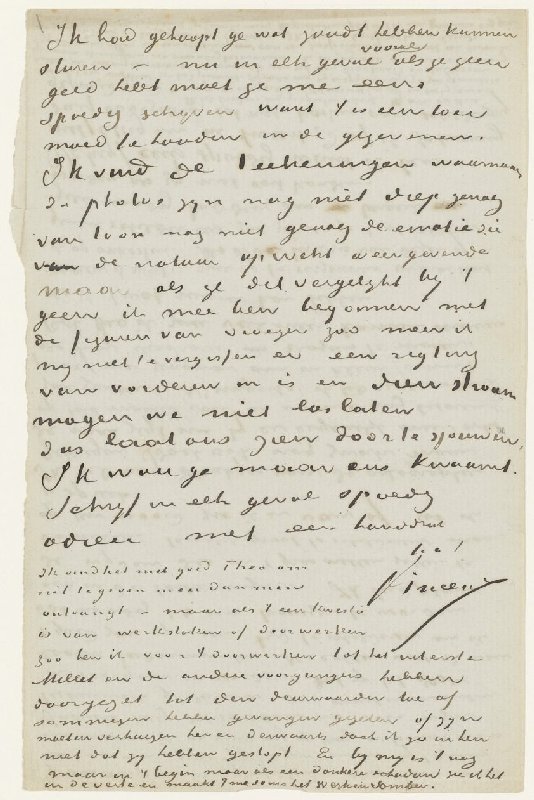 Ik had gehoopt ge wat zoudt hebben kunnen
vooral
sturen – nu in elk geval als ge geen
geld hebt moet ge me eens
spoedig schrijven want 't is een toer
moed te houden in de gegevenen.
Ik vind de teekeningen waarnaar
de photos zijn nog niet diep genoeg
van toon nog niet genoeg de emotie die
van de natuur opwekt weergevende
maar als ge dit vergelijkt bij 't
geen ik mee ben begonnen met
de figuren van vroeger zoo meen ik
mij niet te vergissen er een rigting
van vorderen in is en dien stroom
mogen we niet loslaten
dus laat ons zien door te spannen,
Ik wou ge maar eens kwaamt.
Schrijf in elk geval spoedig
adieu met een handdruk
t. à t.
Vincent
Ik vind het niet goed Theo om
uit te geven meer dan men
ontvangt – maar als 't een kwestie
is van werk staken of doorwerken
zoo ben ik voor 't doorwerken tot het uiterste
Millet en de andere voorgangers hebben
doorgezet tot den deurwaarder toe of
sommigen hebben gevangen gezeten of zijn
moeten verhuizen her en derwaarts doch ik zie in hen
niet dat zij hebben gestopt En bij mij is 't nog
maar op 't begin maar als een donkere schaduw zie ik het
in de verte en maakt 't me soms het werken somber.